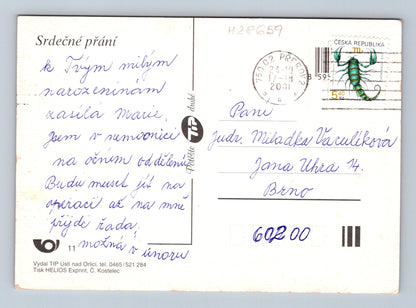 H28659
Srdečné přání
K Tvým milým
narozeninám
zasílá Marie.
Jsem v nemocnici
na očním oddělení.
Budu muset jít na
operaci až na mně
přijde řada.
možná v únoru
11
Vydal TIP Ústí nad Orlicí, tel. 0465/521 284
Tisk HELIOS Exprint, Č. Kostelec
TIP
750 02 PŘEROV 2
2001
ČESKÁ REPUBLIKA
5,40
8 595
Paní
Judr. Miladka Vaculíková
Jana Uhra 14.
Brno
602 00